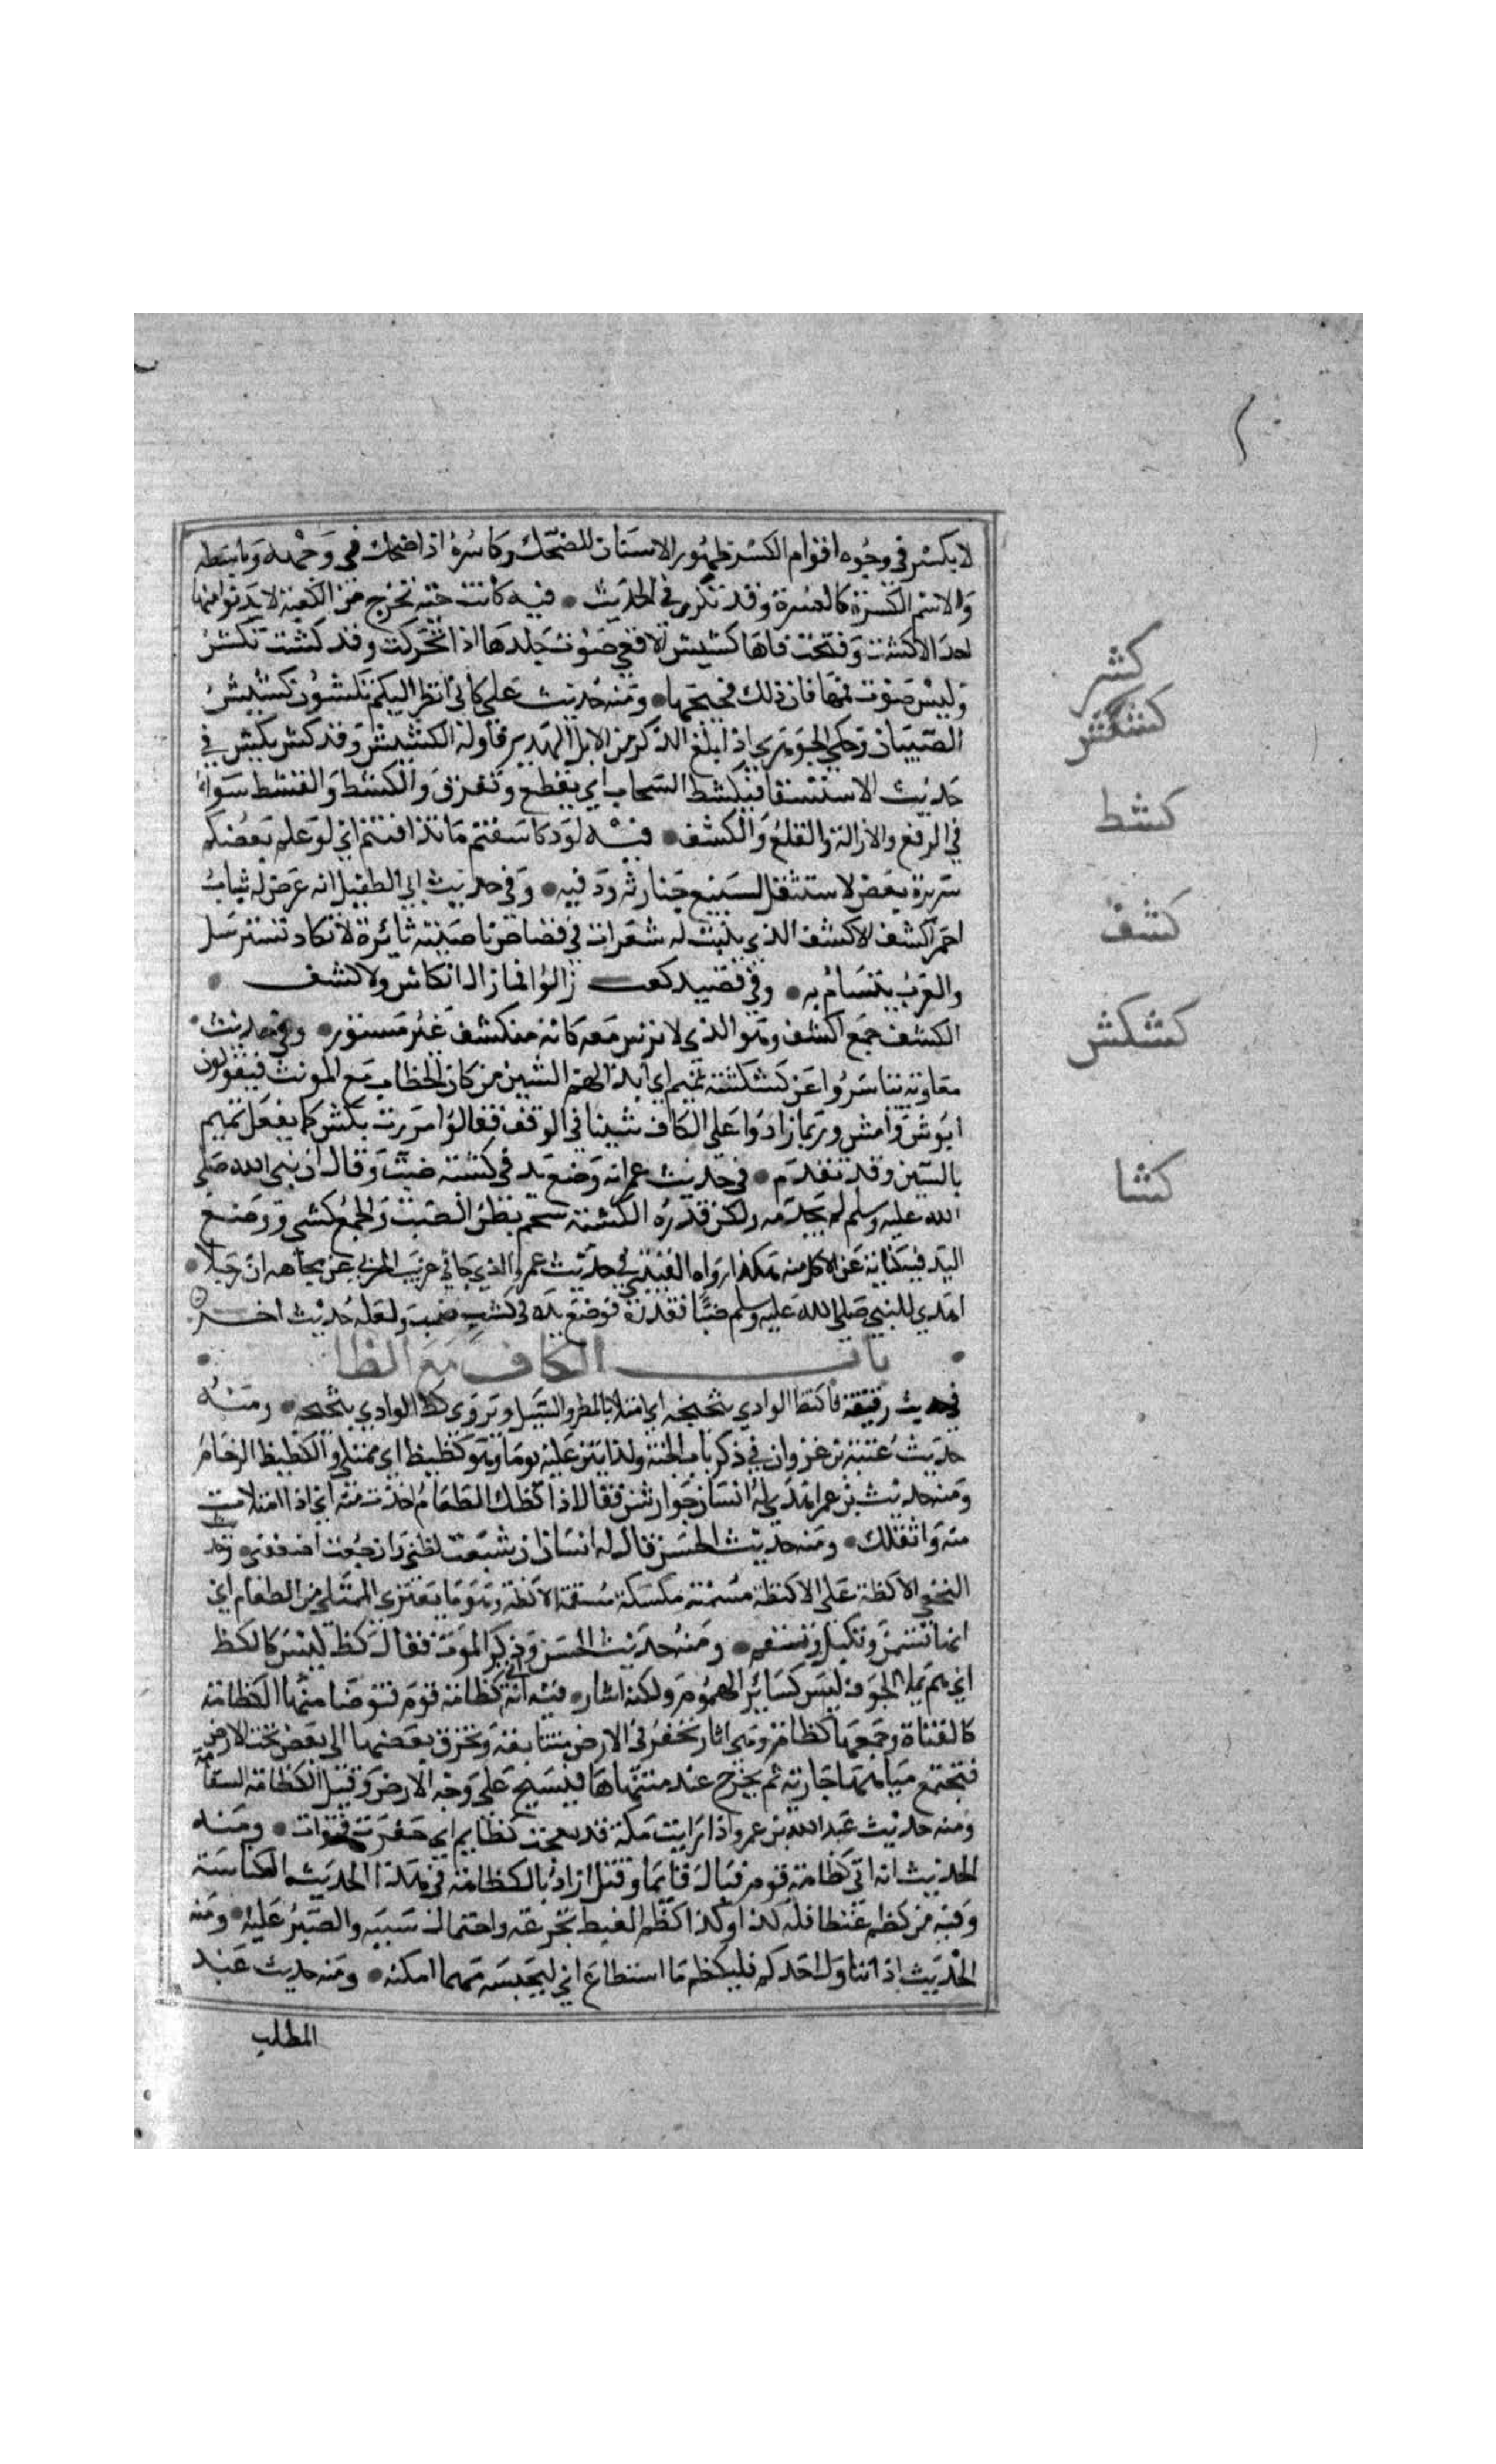 لا نكشر في وجوه اقوام الكشر ظهور الاسنان للضحك وكاشره اذا ضحك في وجهه وباسطه
والاسم الكشرة كالعشرة وقد تكرر في الحديث • فيه كانت حية تخرج من الكعبة لا يدنوا منها
احد الا كشت وفتحت فاها كشيش الافعي صوت جلدها اذا تحركت وقد كشت تكش
وليس صوت فمها فان ذلك فحيحها • ومنه حديث علي كاني انظر اليكم تكشون كشيش
الضباب وحكي الجوهري اذا بلغ الذكر من الابل الهدير فاوله الكشيش وقد كش يكش في
حديث الاستسقا فتكشط السحاب اي تقطع وتفرق والكشط والقشط سواء
في الرفع والازالة والقلع والكشف • فيه لو تكاشفتم ما تدافنتم اي لو علم بعضكم
سريرة بعض لاستثقل تشييع جنازته ودفنه • وفي حديث ابي الطفيل انه عرض له شاب
احمر اكشف الاكشف الذي ينبت له شعرات في قصاص ناصيته ثائرة لا تكاد تسترسل
والعرب تتشاءم به • وفي قصيد كعب زالوا فما زال انكاس ولا كشف •
الكشف جمع اكشف وهو الذي لا ترس معه كانه منكشف غير مستور • وفي حديث
معاوية تياسروا عن كشكشة تميم اي ابدالهم الشين من كاف الخطاب مع المونث فيقولون
ابوش وامش وربما زادوا علي الكاف شينا في الوقف فقالوا مررت بكش كما يفعل تميم
بالسين وقد تقدم • في حديث عمر انه وضع يده في كشية ضب وقال ان نبي الله صلي
الله عليه وسلم لم يحرمه ولكن قذره الكشية شحم بطن الضب والجمع كشي ووضع
اليد فيه كناية عن الاكل منه هكذا رواه القتيبي في حديث عمر والذي جا في غريب الحربي عن مجاهد ان رجلا •
اهدي للنبي صلي الله عليه وسلم ضبا فقذره فوضع يده في كشي ضب ولعله حديث اخر
• باب الكاف مع الظا •
في حديث رقيقة فاكتظ الوادي بثجيجه اي امتلا بالمطر والسيل ويروي كظ الوادي بثجيجه • ومنه
حديث عتبة بن غزوان في ذكر باب الجنة ولياتين عليه يوما وهو كظيظ اي ممتلي والكظيظ الزحام
ومنه حديث بن عمر اهدي له انسان جوارش فقال اذا كظك الطعام اخذت منه اي اذا امتلات
منه واثقلك • ومنه حديث الحسن قال له انسان ان شبعت كظني وان جعت اضعفني • وحديث
النخعي الاكظة علي الاكظة مسمنة مكسلة مسقمة الاكظة وهو ما يعتري الممتلي من الطعام اي
انها تسمن وتكسل وتسقم • ومنه حديث الحسن وذكر الموت فقال كظ ليس كالكظ
اي هم يملا الجوف ليس كسائر الهموم ولكنه اشد • فيه انه اتي كظامة قوم فتوضا منها الكظامة
كالقناة وجمعها كظائم وهي ابار تحفر في الارض متناسقة وتخرق بعضها الي بعض تحت الارض
فتجتمع مياهها جارية ثم يخرج عند منتهاها فيسيح علي وجه الارض وقيل الكظامة السقاية
ومنه حديث عبد الله بن عمرو اذا رايت مكة قد بعجت كظايم اي حفرت قنوات • ومنه
الحديث انه اتي كظامة قوم فبال قايما وقيل اراد بالكظامة في هذا الحديث الكناسة
وفيه من كظم غيظا فله كذا وكذا كظم الغيظ تجرعه واحتمال سببه والصبر عليه • ومنه
الحديث اذا تثاوب احدكم فليكظم ما استطاع اي ليحبسه مهما امكنه • ومنه حديث عبد
المطلب
كشر
كشكش
كشط
كشف
كشكش
كشا